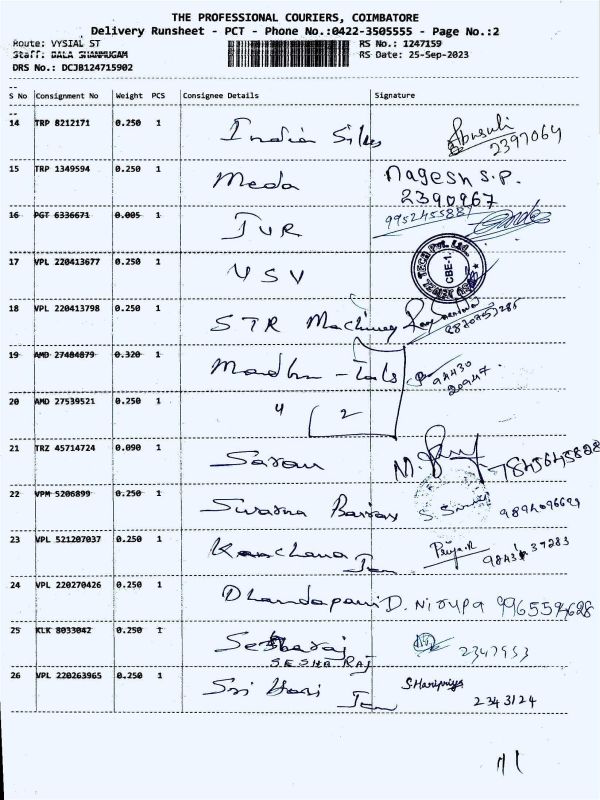 THE PROFESSIONAL COURIERS, COIMBATORE
Delivery Runsheet - PCT - Phone No.:0422-3505555 - Page No.:2
Route: VYSIAL ST RS No.: 1247159
Staff: BALA SHANMUGAM RS Date: 25-Sep-2023
DRS No.: DCJB124715902
S No Consignment No Weight PCS Consignee Details Signature
14 TRP 8212171 0.250 1 Indian Silks 2397064
15 TRP 1349594 0.250 1 Meda Nagesh S.P.
2390967
16 PGT 6336671 0.005 1 JVR 9952455887
17 VPL 220413677 0.250 1 USV TECH Pvt. Ltd. CBE-1.
18 VPL 220413798 0.250 1 STR Machinery
19 AMD 27484879 0.320 1 Madhu - Tails 94430
20947.
20 AMD 27539521 0.250 1 " 2
21 TRZ 45714724 0.090 1 Saran M. 7845645828
22 VPM 5206899 0.250 1 Swarna
23 VPL 521207037 0.250 1 Kanchana Jan Priya.R
24 VPL 220270426 0.250 1 Dhandapani D. Nirupa
25 KLK 8033042 0.250 1 Sesharaj 2347953
SESHA RAJ
26 VPL 220263965 0.250 1 Sri Hari Jan S.Haripriya
2343124